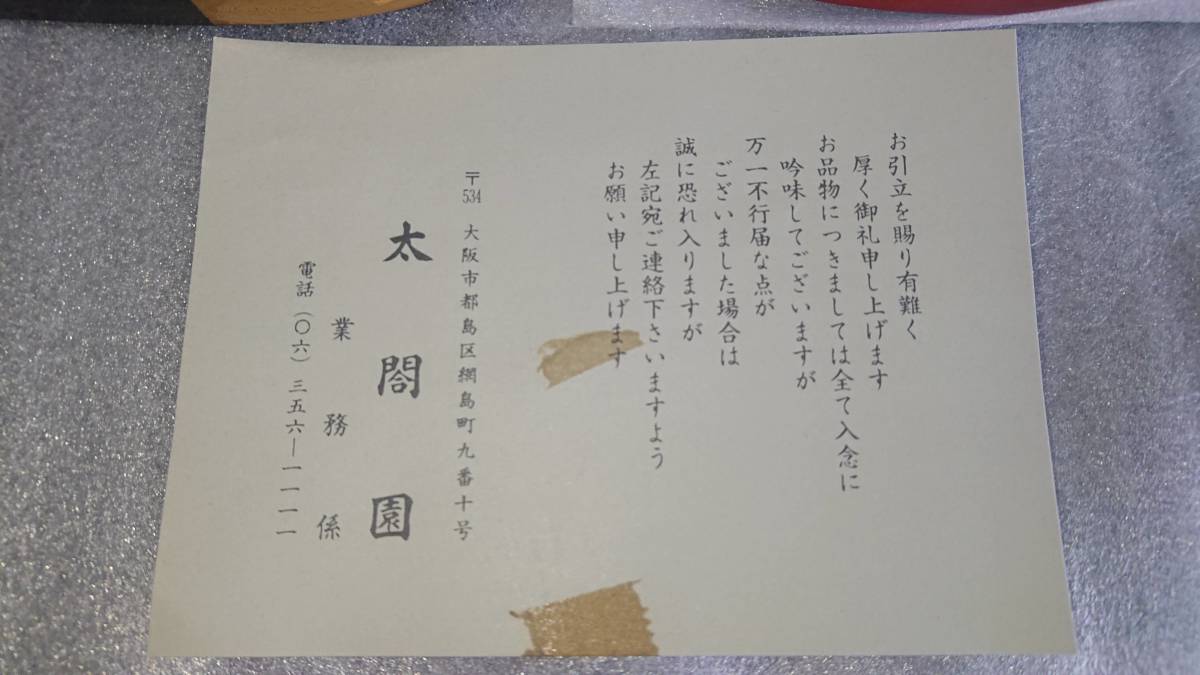 お引立を賜り有難く
厚く御礼申し上げます
お品物につきましては全て入念に
吟味してございますが
万一不行届な点が
ございました場合は
誠に恐れ入りますが
左記宛ご連絡下さいますよう
お願い申し上げます
〒534 大阪市都島区網島町九番十号
太閤園
業務係
電話(〇六)三五六―一一一一